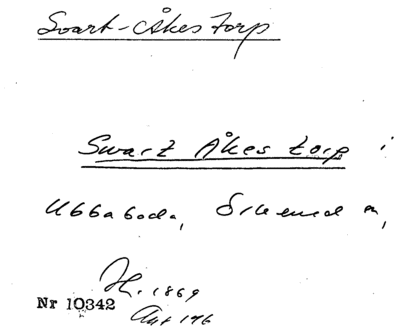 Svart-Åkes torp
Swart Åkes torp i
Ubbaboda,
1869
Nr 10342